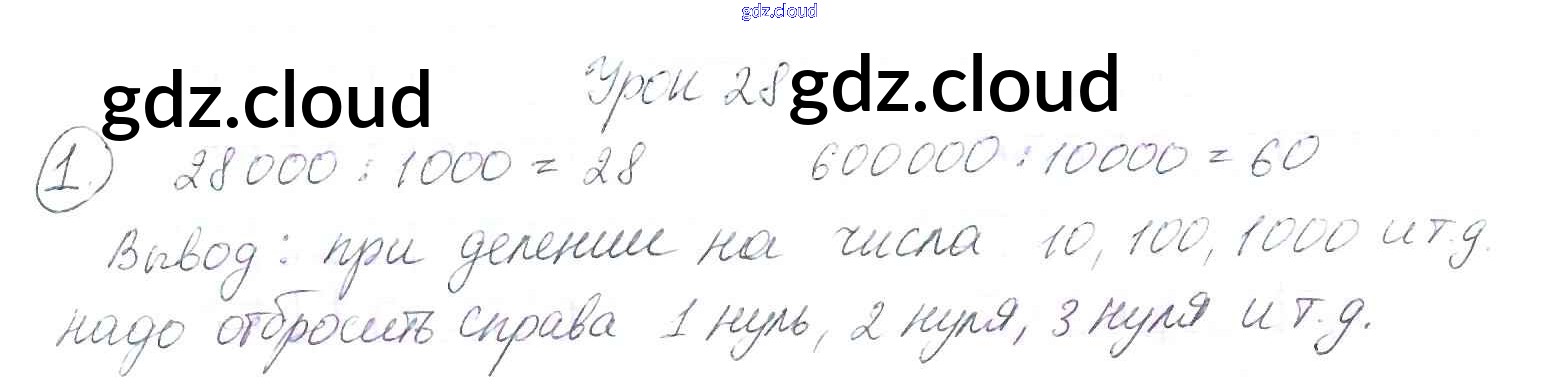 gdz.cloud
Урок 28
gdz.cloud gdz.cloud
1. 28000 : 1000 = 28 600000 : 10000 = 60
Вывод: при делении на числа 10, 100, 1000 и т.д.
надо отбросить справа 1 нуль, 2 нуля, 3 нуля и т.д.